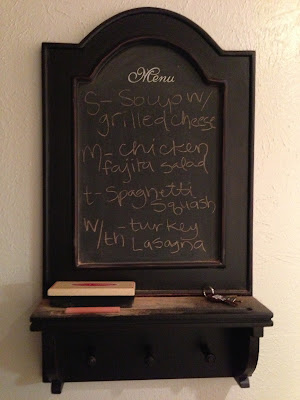 Menu
S- Soup w/
grilled cheese
M- chicken
fajita salad
t- Spaghetti
Squash
W/ - turkey
th Lasagna